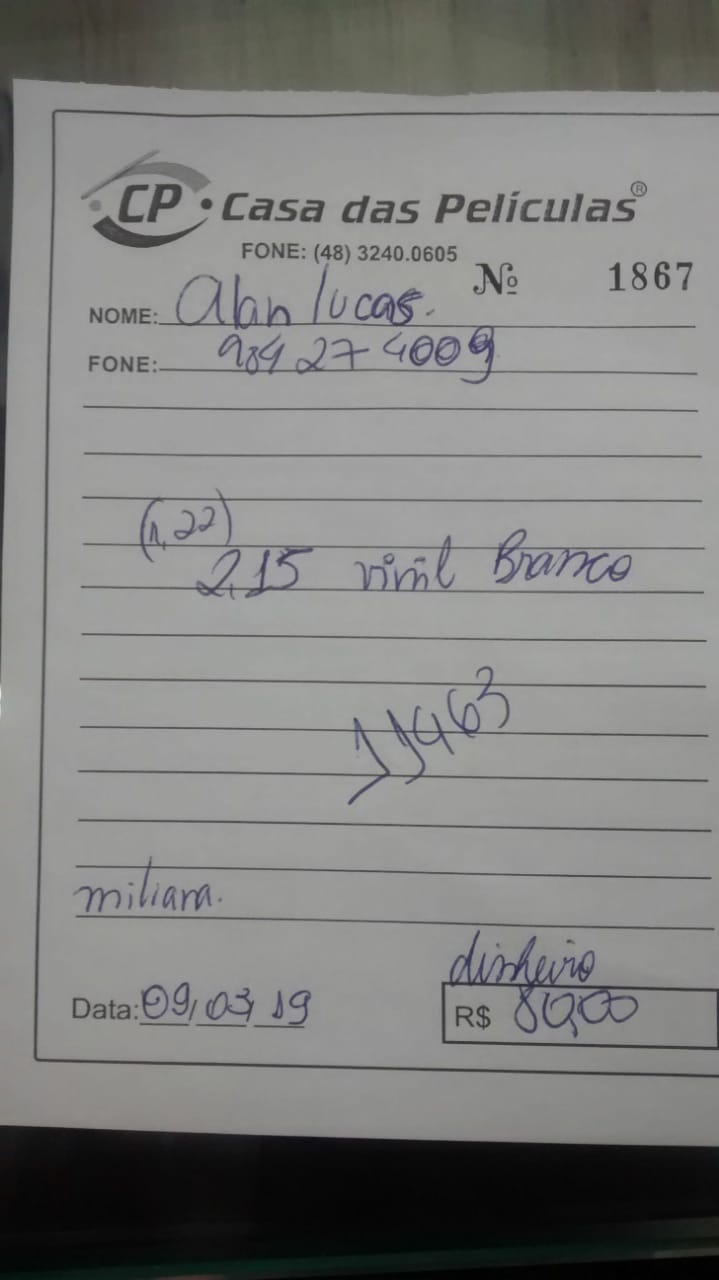 CP • Casa das Películas®
FONE: (48) 3240.0605
Nº 1867
NOME: Alan Lucas.
FONE: 984274009
(1,22)
2,15 vinil Branco
11463
miliana.
dinheiro
Data: 09/03/19 R$ 80,00